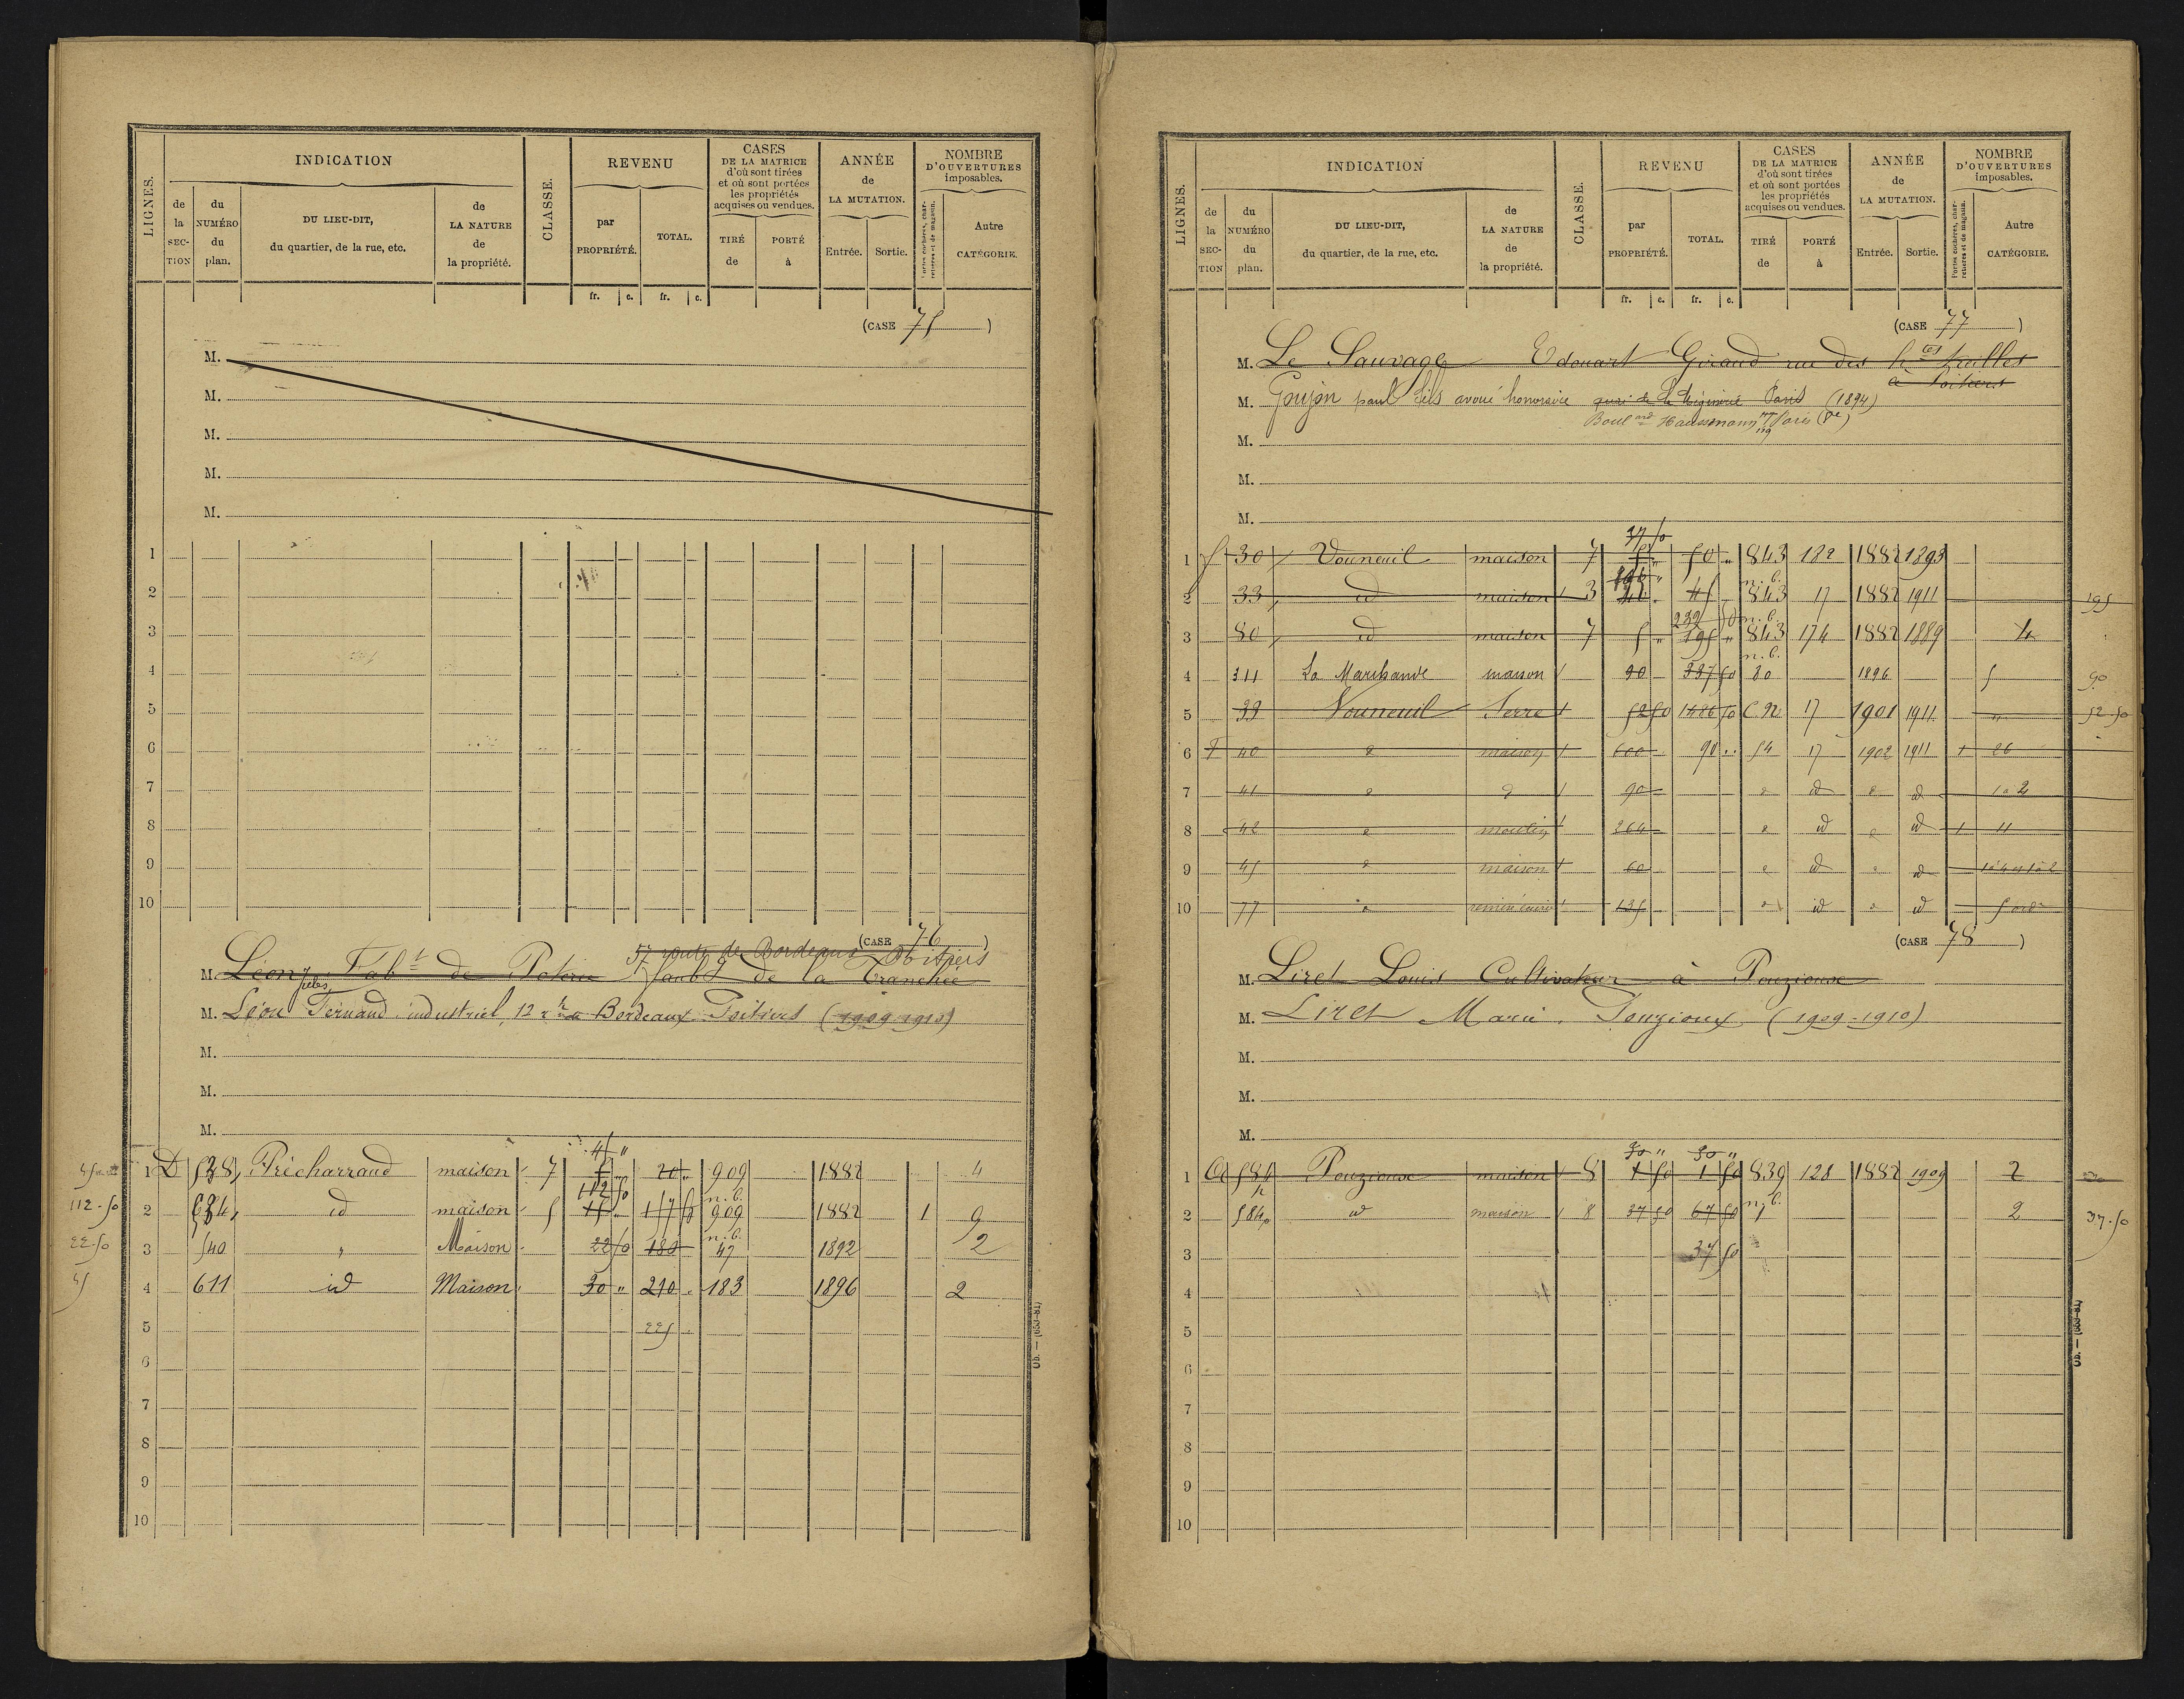 LIGNES.
INDICATION
de la SECTION
du NUMÉRO du plan.
DU LIEU-DIT, du quartier, de la rue, etc.
de LA NATURE de la propriété.
CLASSE.
REVENU
par PROPRIÉTÉ.
TOTAL.
CASES DE LA MATRICE d'où sont tirées et où sont portées les propriétés acquises ou vendues.
TIRÉ de
PORTÉ à
ANNÉE de LA MUTATION.
Entrée.
Sortie.
NOMBRE D'OUVERTURES imposables.
Portes cochères, charretières et de magasin.
Autre CATÉGORIE.
fr. c. fr. c.
(CASE 75)
M.
M.
M.
M.
M.
1
2
3
4
5
6
7
8
9
10
(CASE 76)
57 route de Bordeaux Poitiers
M. Léon Jules Fabt de Poterie faubg de la Tranchée
M. Léon Fernand industriel, 12 rte de Bordeaux Poitiers (1909-1910)
M.
M.
M.
45 "
1 D 538 Précharraud maison 7 5 20 " 909 1882 4
112 50 n. b.
112.50 2 634 id maison 5 15 " 157 50 909 1882 1 9
n. b.
22.50 3 540 " Maison 22 50 180 47 1892 2
45 4 611 id Maison 30 " 210 183 1896 2
5 225
6
7
8
9
10
LIGNES.
INDICATION
de la SECTION
du NUMÉRO du plan.
DU LIEU-DIT, du quartier, de la rue, etc.
de LA NATURE de la propriété.
CLASSE.
REVENU
par PROPRIÉTÉ.
TOTAL.
CASES DE LA MATRICE d'où sont tirées et où sont portées les propriétés acquises ou vendues.
TIRÉ de
PORTÉ à
ANNÉE de LA MUTATION.
Entrée.
Sortie.
NOMBRE D'OUVERTURES imposables.
Portes cochères, charretières et de magasin.
Autre CATÉGORIE.
fr. c. fr. c.
(CASE 77)
M. Le Sauvage Edouart Giraud rue des htes treilles
à Poitiers
M. Goujon paul fils avoué honoraire quai de la Mégisserie Paris (1894)
Boulard Haussmann Paris
M.
M.
M.
37 50
1 30 Vouneuil maison 7 5 " 50 " 843 182 1882 1893
n. b.
2 33 id maison 3 45 843 17 1882 1911 195
232 50 n. b.
3 80 id maison 7 5 " 195 " 843 174 1882 1889 4
n. b.
4 311 La Marchande maison 90 387 50 80 1896 5 90
5 33 Vouneuil Serre 52 50 1486 50 C.N 17 1901 1911 " 52.50
6 40 maison 600 90 54 17 1902 1911 1 26
7 41 90 id id 1 à 2
8 42 moulin 264 id id 1 11
9 45 maison 60 id id
10 77 135 id id 5
(CASE 78)
M. Liret Louis Cultivateur à Pouzioux
M. Liret Marie Pouzioux (1909-1910)
M.
M.
M.
30 " 30 "
1 581 Pouzioux maison 8 1 50 1 50 839 128 1882 1909 2
n. b.
2 584 id maison 8 37 50 67 50 1 2 37.50
3 37 50
4
5
6
7
8
9
10